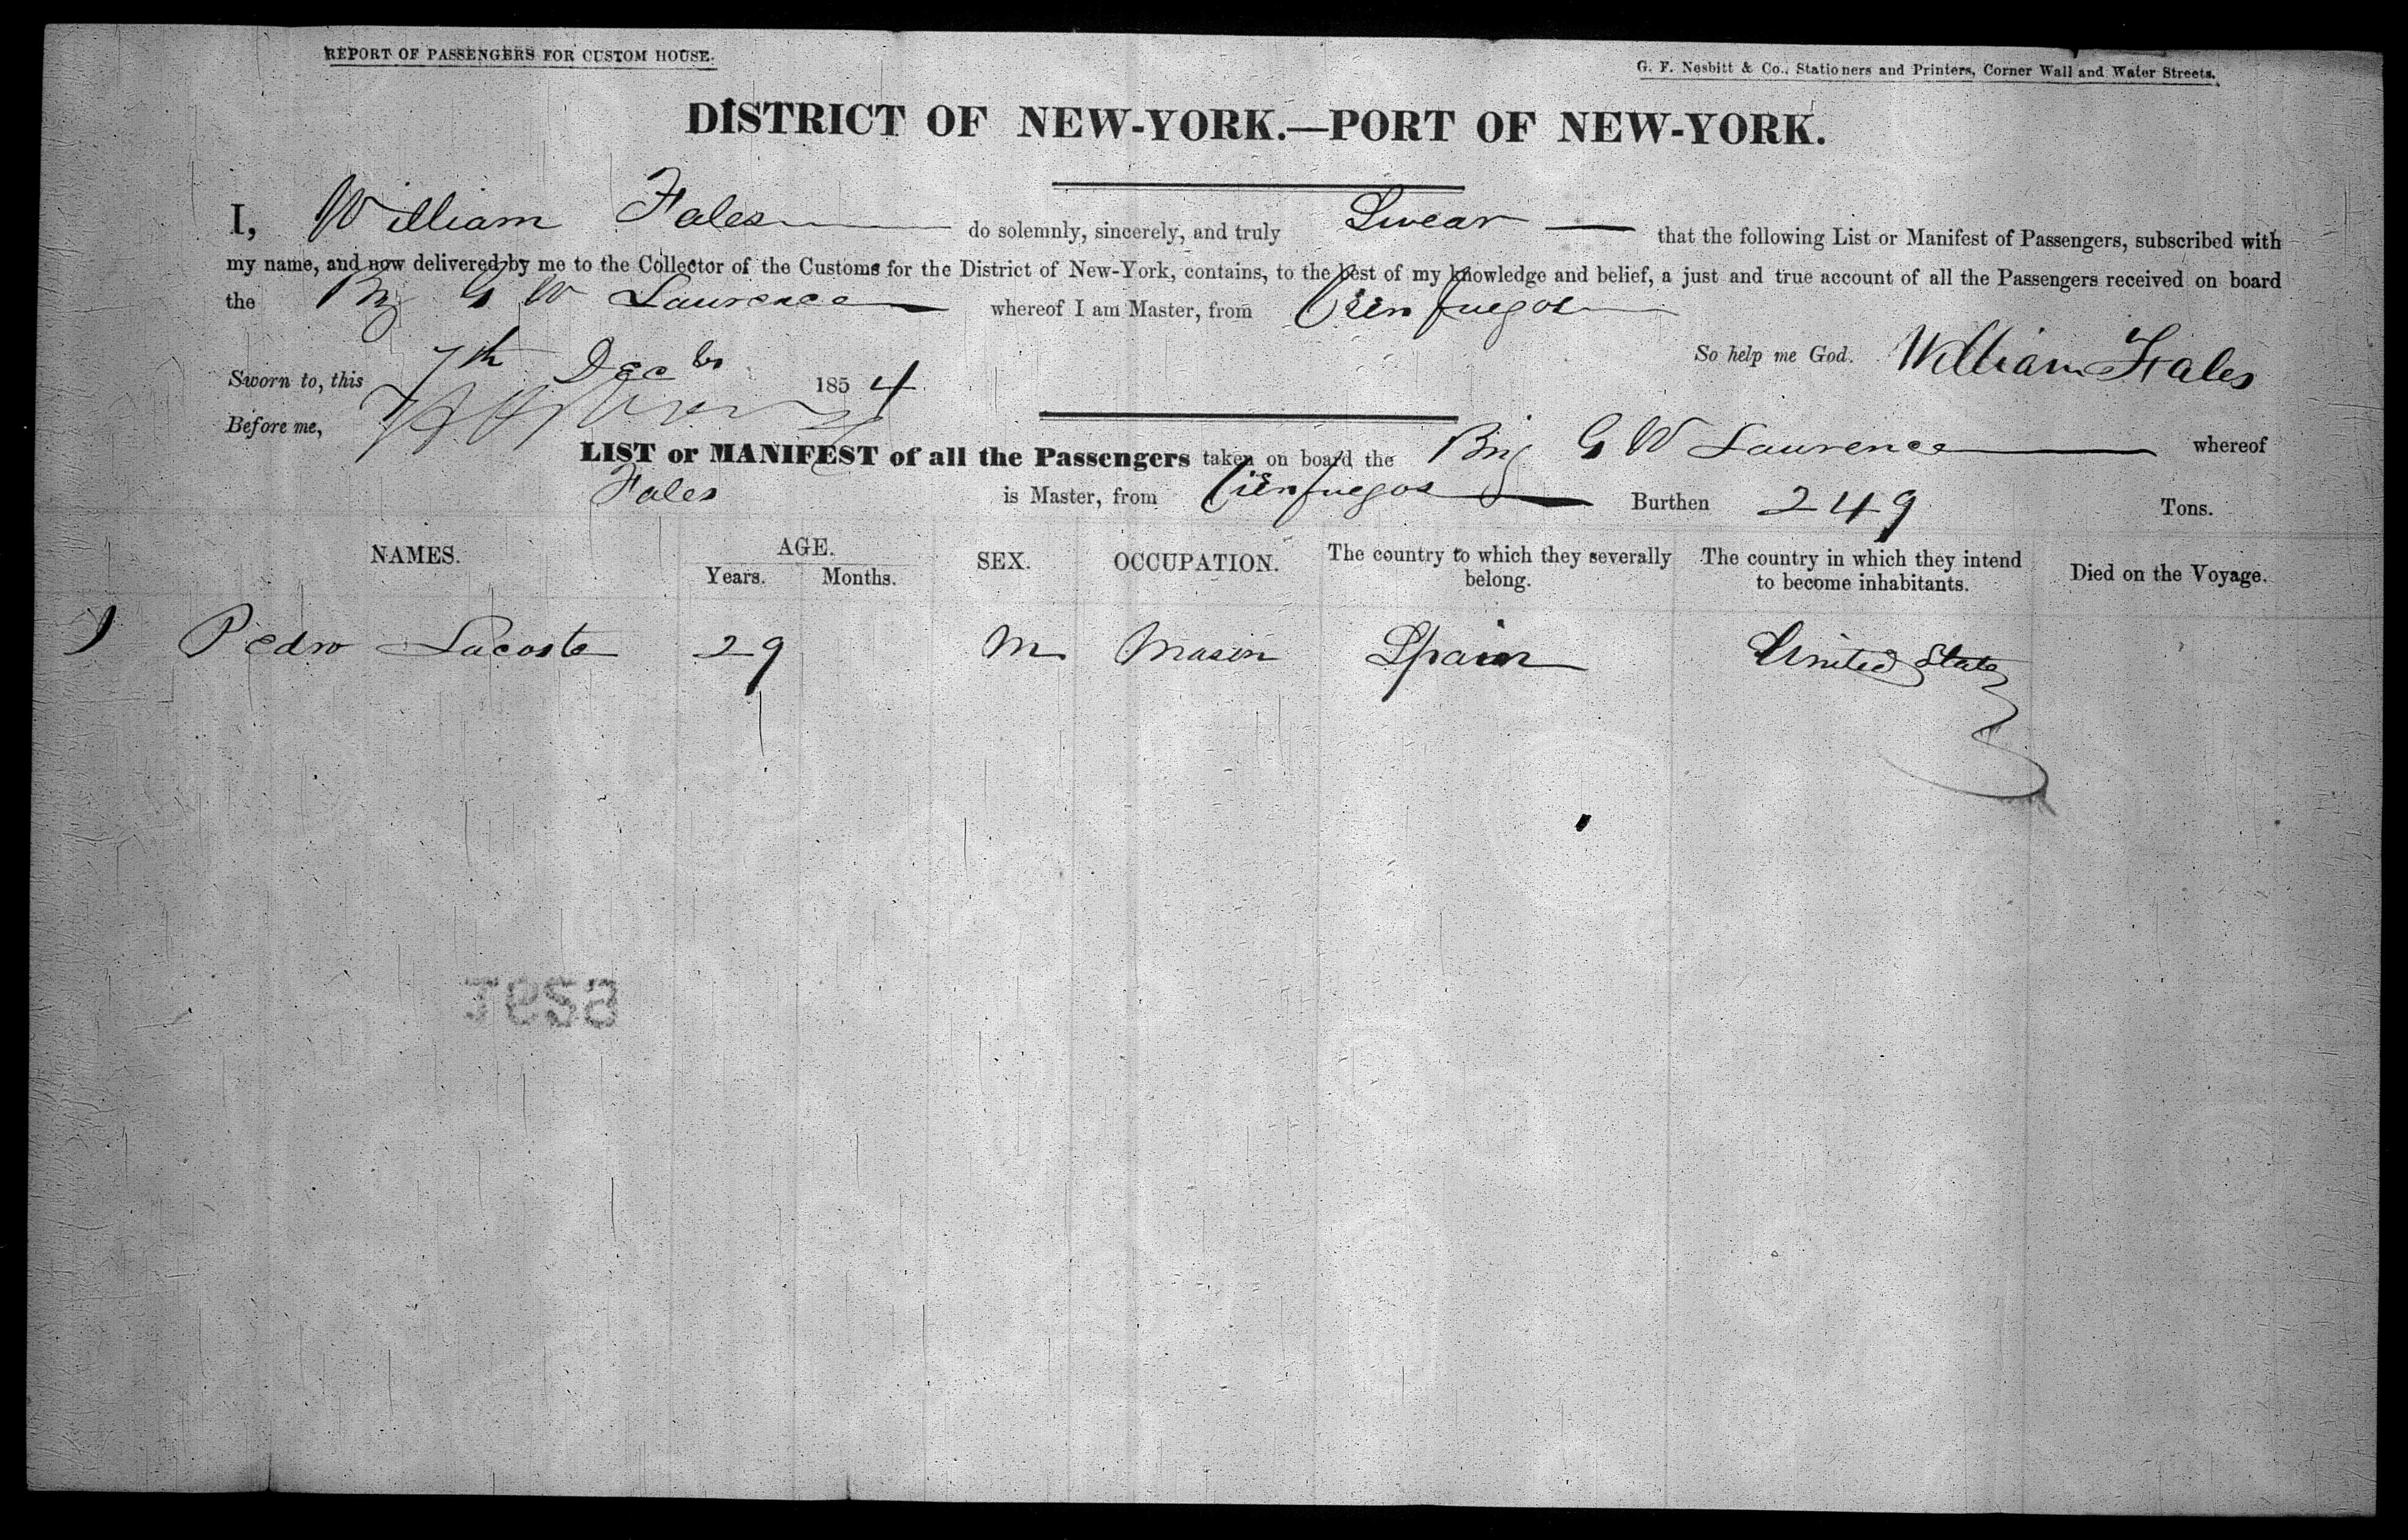 REPORT OF PASSENGERS FOR CUSTOM HOUSE.
G. F. Nesbitt & Co., Stationers and Printers, Corner Wall and Water Streets.
DISTRICT OF NEW-YORK.—PORT OF NEW-YORK.
I, William Fales do solemnly, sincerely, and truly Swear that the following List or Manifest of Passengers, subscribed with
my name, and now delivered by me to the Collector of the Customs for the District of New-York, contains, to the best of my knowledge and belief, a just and true account of all the Passengers received on board
the Brig G W Laurence whereof I am Master, from Cienfuegos
So help me God. William Fales
Sworn to, this 7th Decbr 1854
Before me,
LIST or MANIFEST of all the Passengers taken on board the Brig G W Laurence whereof
Fales is Master, from Cienfuegos Burthen 249 Tons.
NAMES. AGE. Years. Months. SEX. OCCUPATION. The country to which they severally belong. The country in which they intend to become inhabitants. Died on the Voyage.
1 Pedro Lacoste 29 M Mason Spain United States